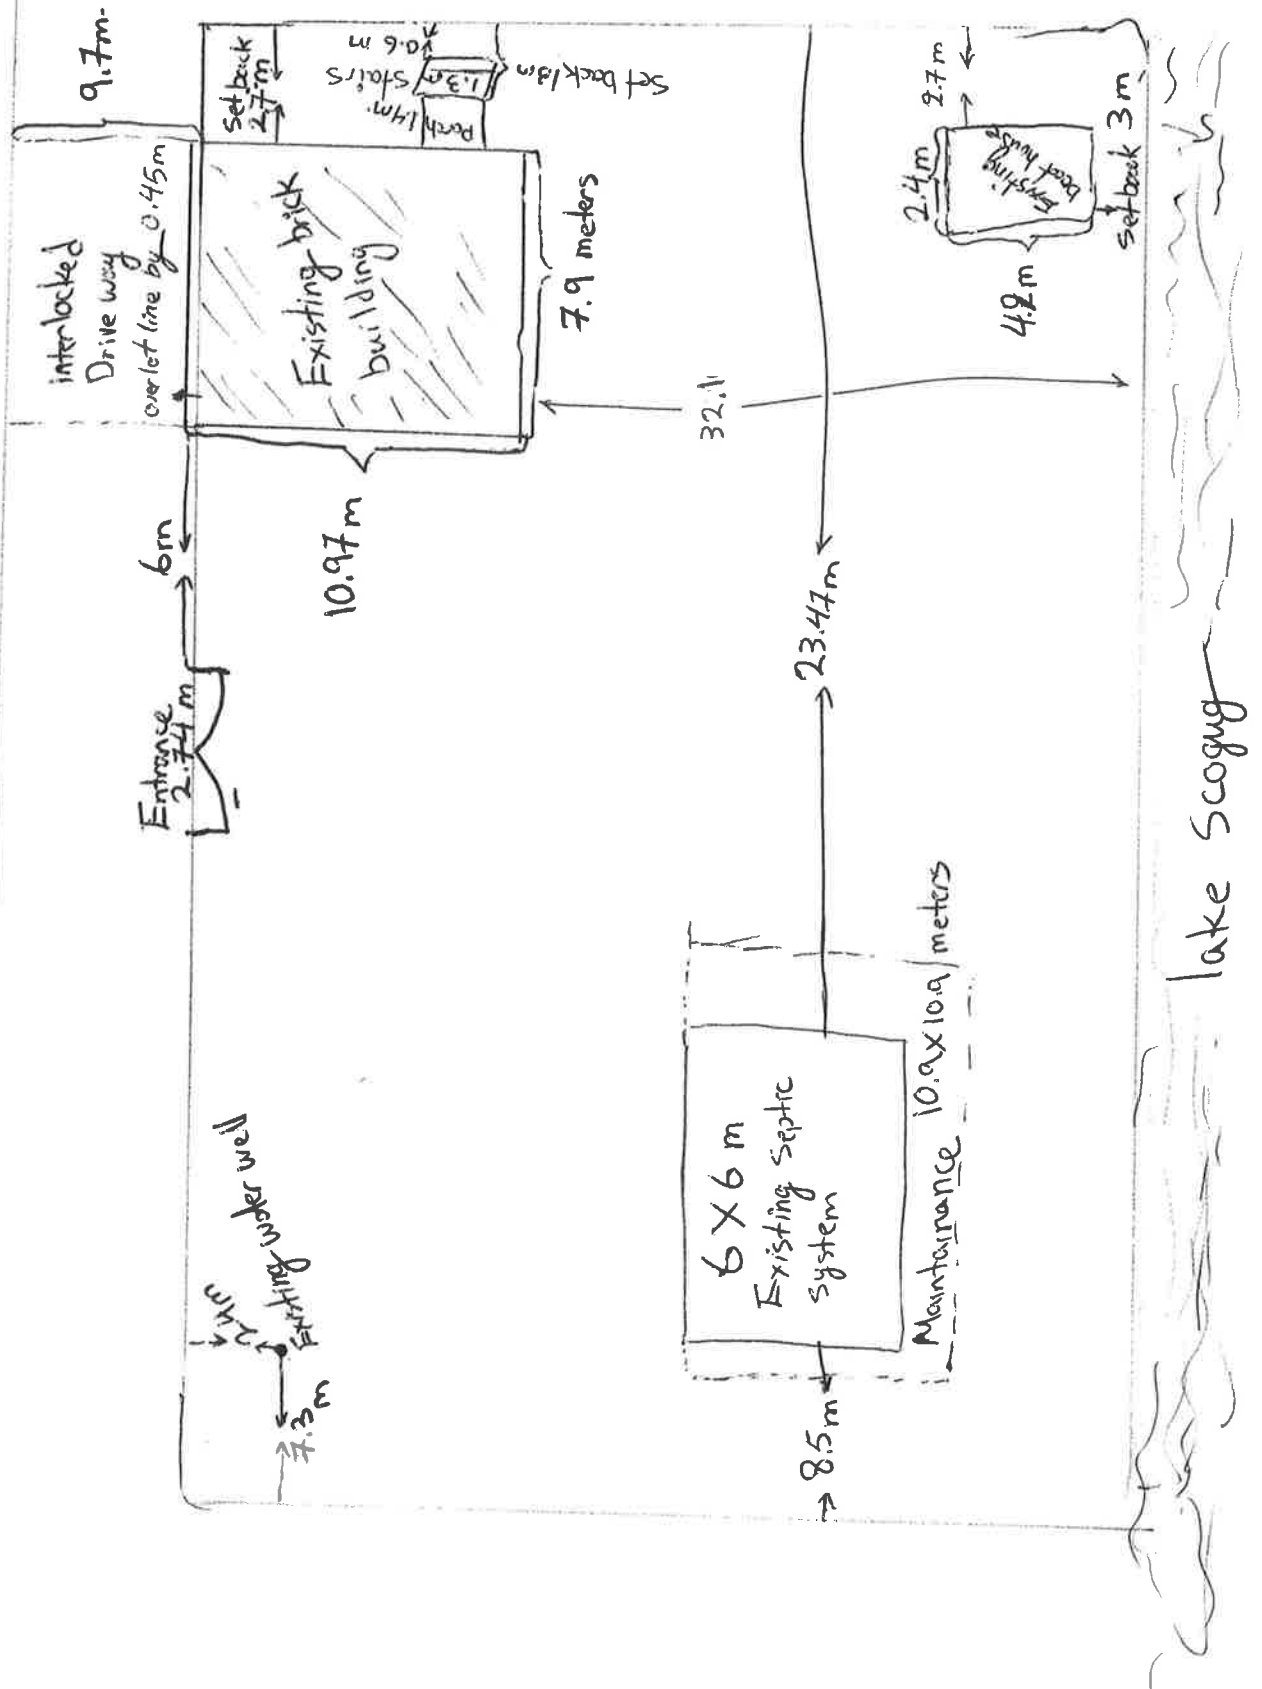 9.7m.
interlocked
Drive way
over lot line by 0.45m
Set back
2.7m
0.6 m
stairs
1.3m
Porch
1.4m.
Set back 1.3m
Existing brick
building
7.9 meters
10.97m
6m
Entrance
2.74 m
32.1
2.7m
2.4m
Existing
boat house
4.2m
Setback 3m
23.47m
2.4m
Existing water well
7.3m
6 X 6 m
Existing Septic
System
Maintainance 10.9x10.9 meters
8.5m
lake Scogug